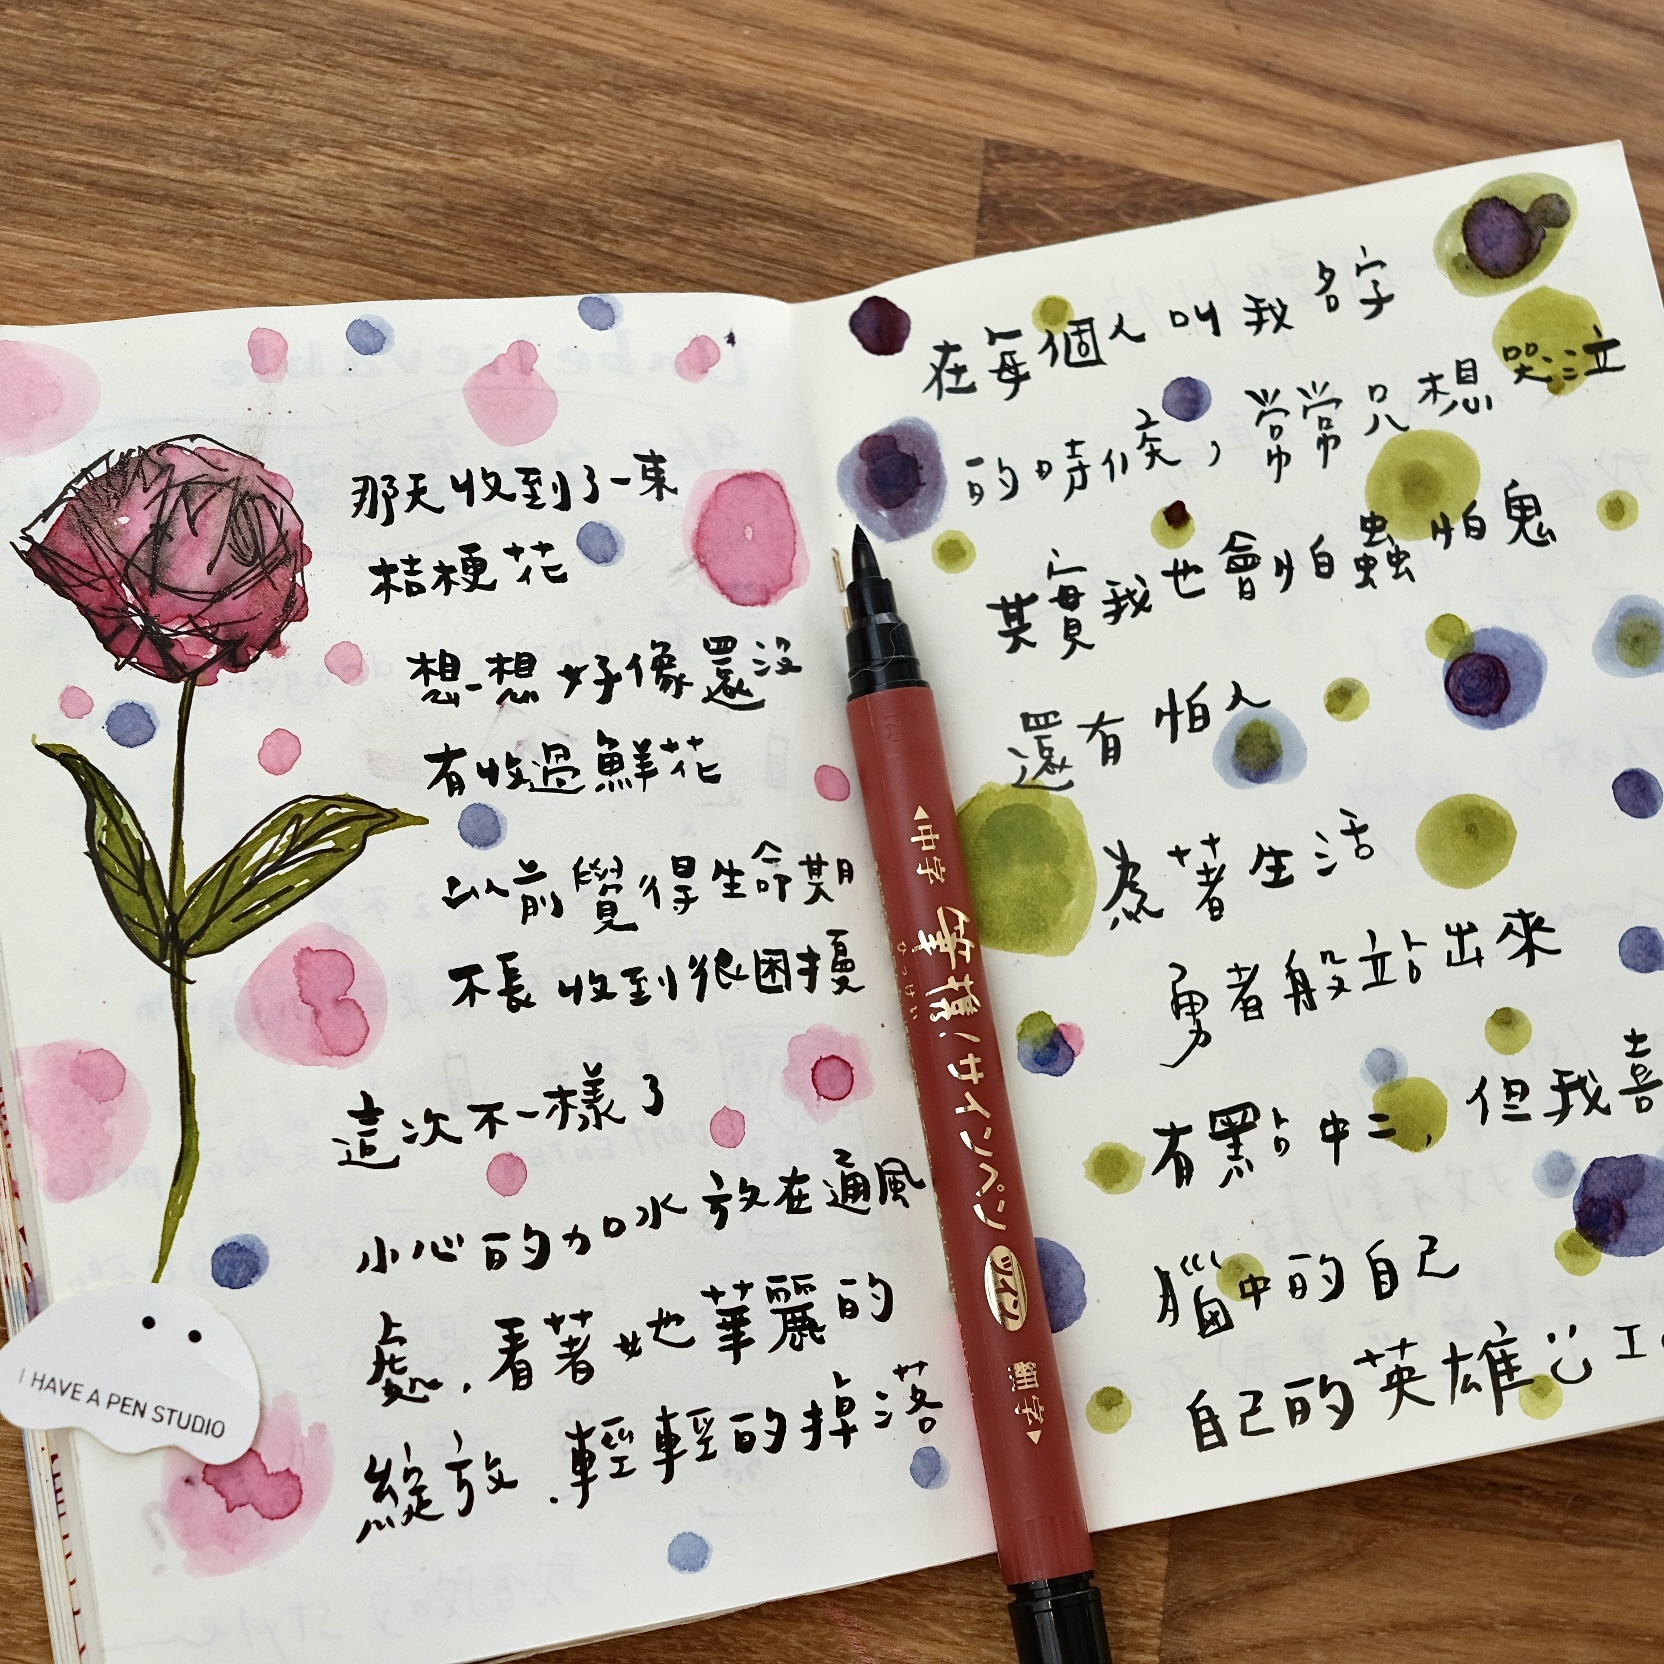 那天收到了一束
桔梗花
想一想好像還沒
有收過鮮花
以前覺得生命期
不長收到很困擾
這次不一樣了
小心的加水放在通風
處,看著她華麗的
綻放,輕輕的掉落
I HAVE A PEN STUDIO
中字 筆慕 サインペン ツイン 細字
ひっけい
在每個人叫我名字
的時候,常常只想哭泣
其實我也會怕蟲怕鬼
還有怕人
為著生活
勇者般站出來
有點中二,但我喜
腦中的自己
自己的英雄